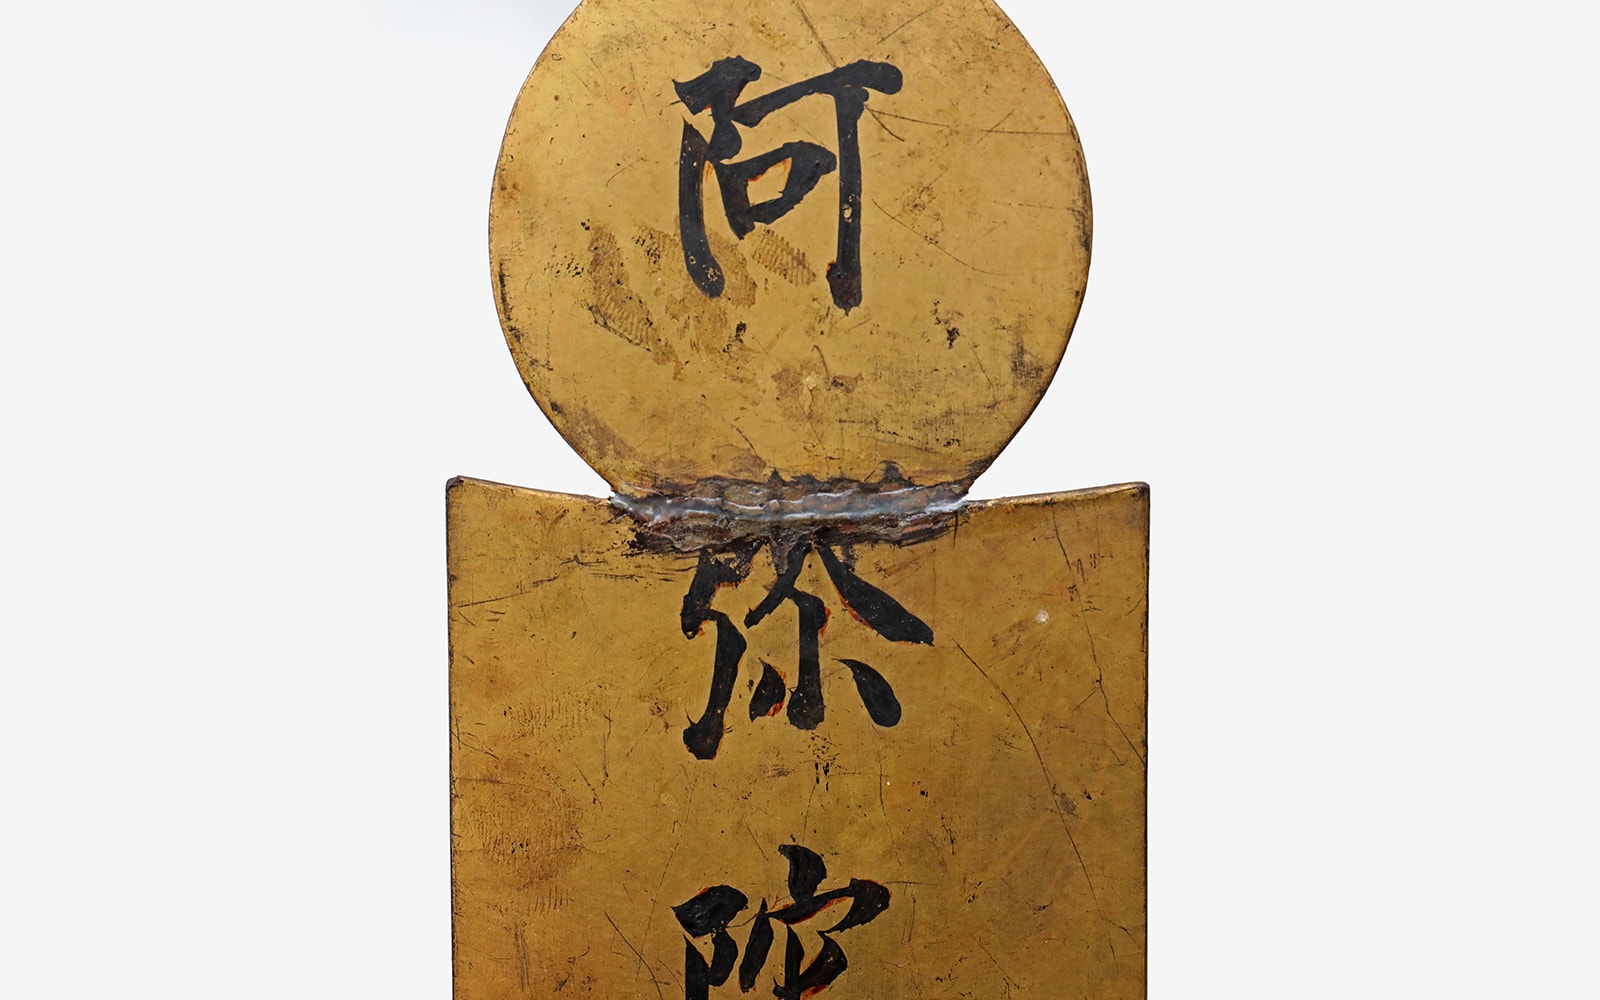 阿
弥
陀